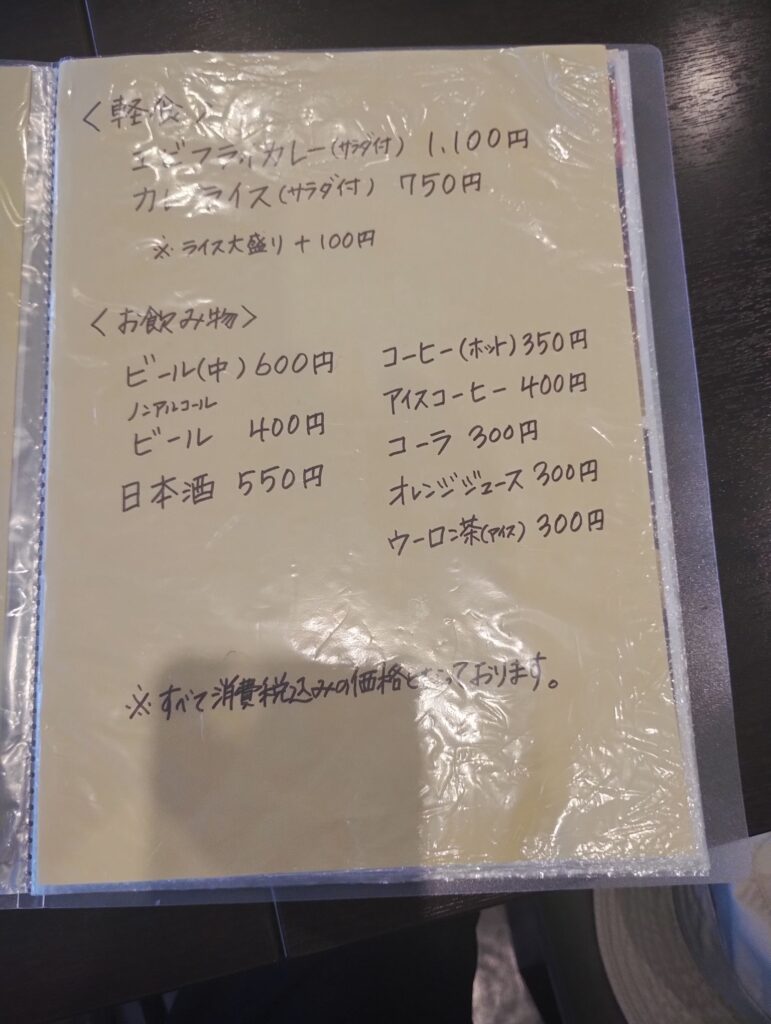 〈軽食〉
エビフライカレー(サラダ付) 1,100円
カレーライス(サラダ付) 750円
※ ライス大盛り + 100円
〈お飲み物〉
ビール(中) 600円
ノンアルコール
ビール 400円
日本酒 550円
コーヒー(ホット) 350円
アイスコーヒー 400円
コーラ 300円
オレンジジュース 300円
ウーロン茶(アイス) 300円
※すべて消費税込みの価格となっております。